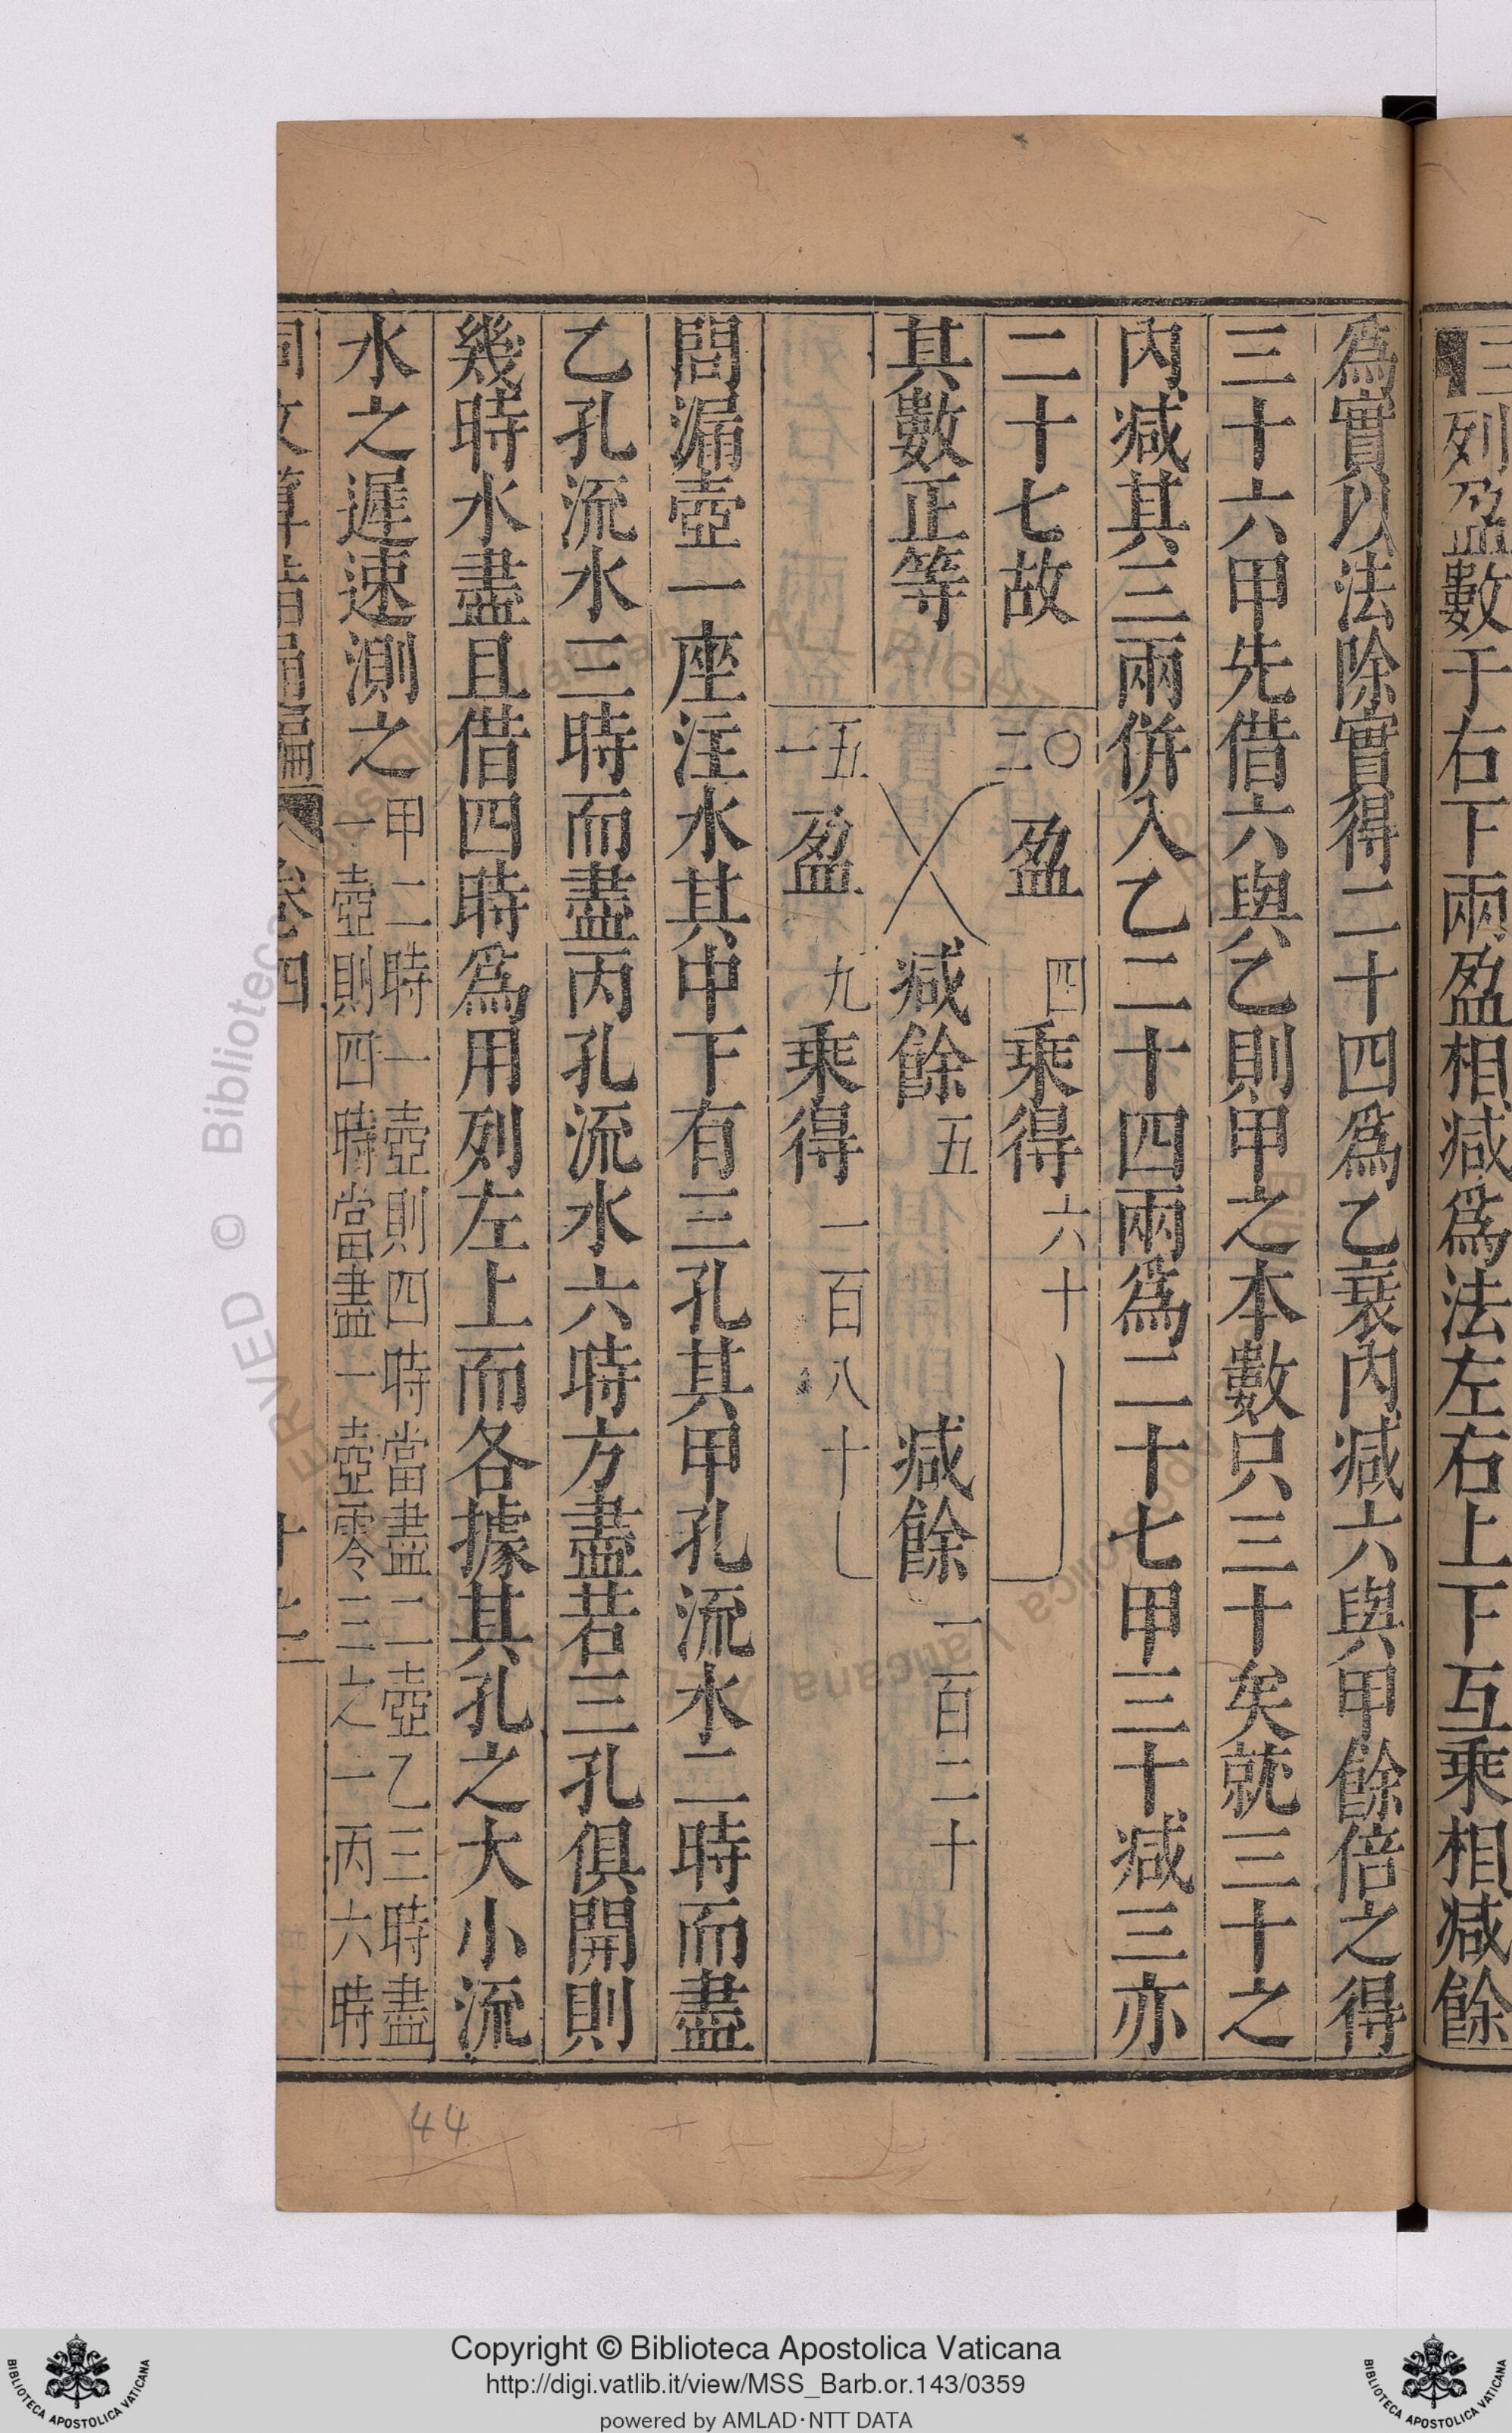 三列盈數于右下兩盈相减爲法左右上下互乘相减餘
爲實以法除實得二十四爲乙衰內减六與甲餘倍之得
三十六甲先借六與乙則甲之本數只三十矣就三十之
內减其三兩併入乙二十四兩爲二十七甲三十减三亦
二十七故
其數正等
二〇 盈 四 乘得 六十
减餘 五 减餘 一百二十
一五 盈 九 乘得 一百八十
問漏壺一座注水其中下有三孔其甲孔流水二時而盡
乙孔流水三時而盡丙孔流水六時方盡若三孔俱開則
幾時水盡且借四時爲用列左上而各據其孔之大小流
水之遲速測之
甲二時一壺則四時當盡二壺乙三時盡
一壺則四時當盡一壺零三之一丙六時
同文算指通編
卷四
44
RESERVED © Biblioteca Apostolica Vaticana
Copyright © Biblioteca Apostolica Vaticana
http://digi.vatlib.it/view/MSS_Barb.or.143/0359
powered by AMLAD·NTT DATA
BIBLIOTECA APOSTOLICA VATICANA
BIBLIOTECA APOSTOLICA VATICANA